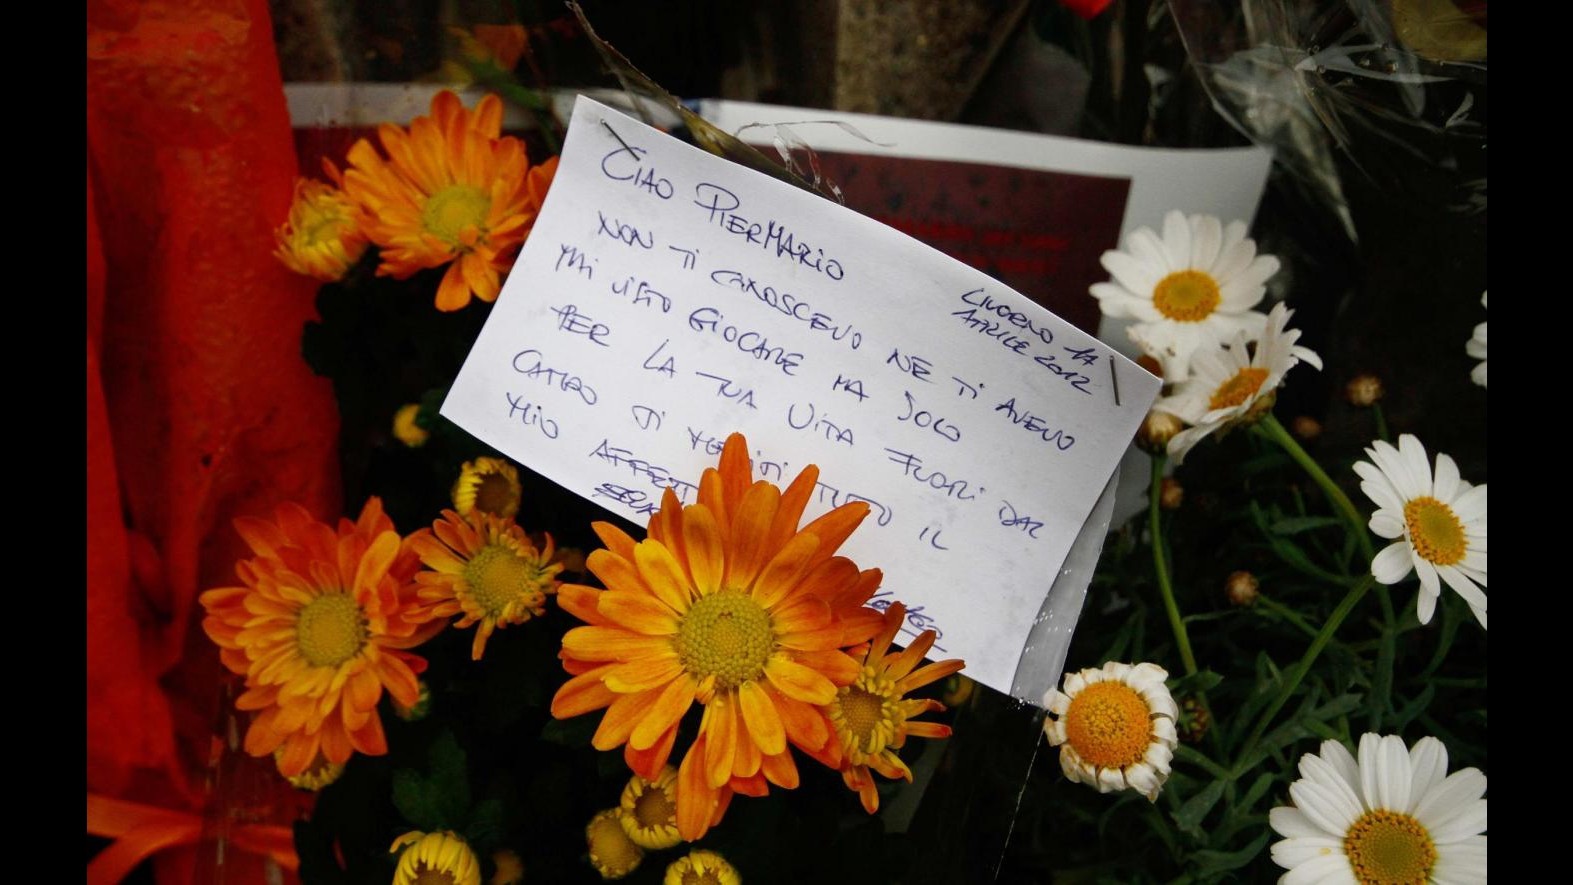 CIAO PIERMARIO
LIVORNO 14
APRILE 2012
NON TI CONOSCEVO NE TI AVEVO
MAI VISTO GIOCARE MA SOLO
PER LA TUA VITA FUORI DAL
CAMPO TI MERITI TUTTO IL
MIO AFFETTO